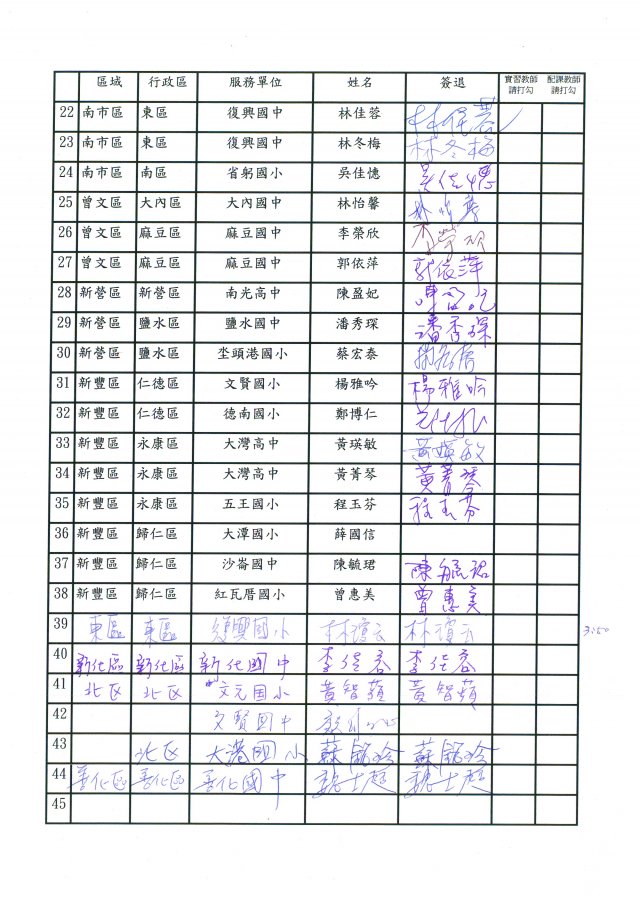 區域 行政區 服務單位 姓名 簽退 實習教師請打勾 配課教師請打勾
22 南市區 東區 復興國中 林佳蓉 林佳蓉
23 南市區 東區 復興國中 林冬梅 林冬梅
24 南市區 南區 省躬國小 吳佳憓 吳佳憓
25 曾文區 大內區 大內國中 林怡馨 林怡馨
26 曾文區 麻豆區 麻豆國中 李榮欣 李榮欣
27 曾文區 麻豆區 麻豆國中 郭依萍 郭依萍
28 新營區 新營區 南光高中 陳盈妃 陳盈妃
29 新營區 鹽水區 鹽水國中 潘秀琛 潘秀琛
30 新營區 鹽水區 坔頭港國小 蔡宏泰
31 新豐區 仁德區 文賢國小 楊雅吟 楊雅吟
32 新豐區 仁德區 德南國小 鄭博仁
33 新豐區 永康區 大灣高中 黃瑛敏 黃瑛敏
34 新豐區 永康區 大灣高中 黃菁琴 黃菁琴
35 新豐區 永康區 五王國小 程玉芬 程玉芬
36 新豐區 歸仁區 大潭國小 薛國信
37 新豐區 歸仁區 沙崙國中 陳毓珺 陳毓珺
38 新豐區 歸仁區 紅瓦厝國小 曾惠美 曾惠美
39 東區 東區 復興國小 林瓊云 林瓊云 3:50
40 新化區 新化區 新化國中 李佳容 李佳容
41 北区 北区 文元国小 黃智蘋 黃智蘋
42 文賢国中
43 北区 大港国小 蘇銘玲 蘇銘玲
44 善化區 善化區 善化國中 魏士超 魏士超
45